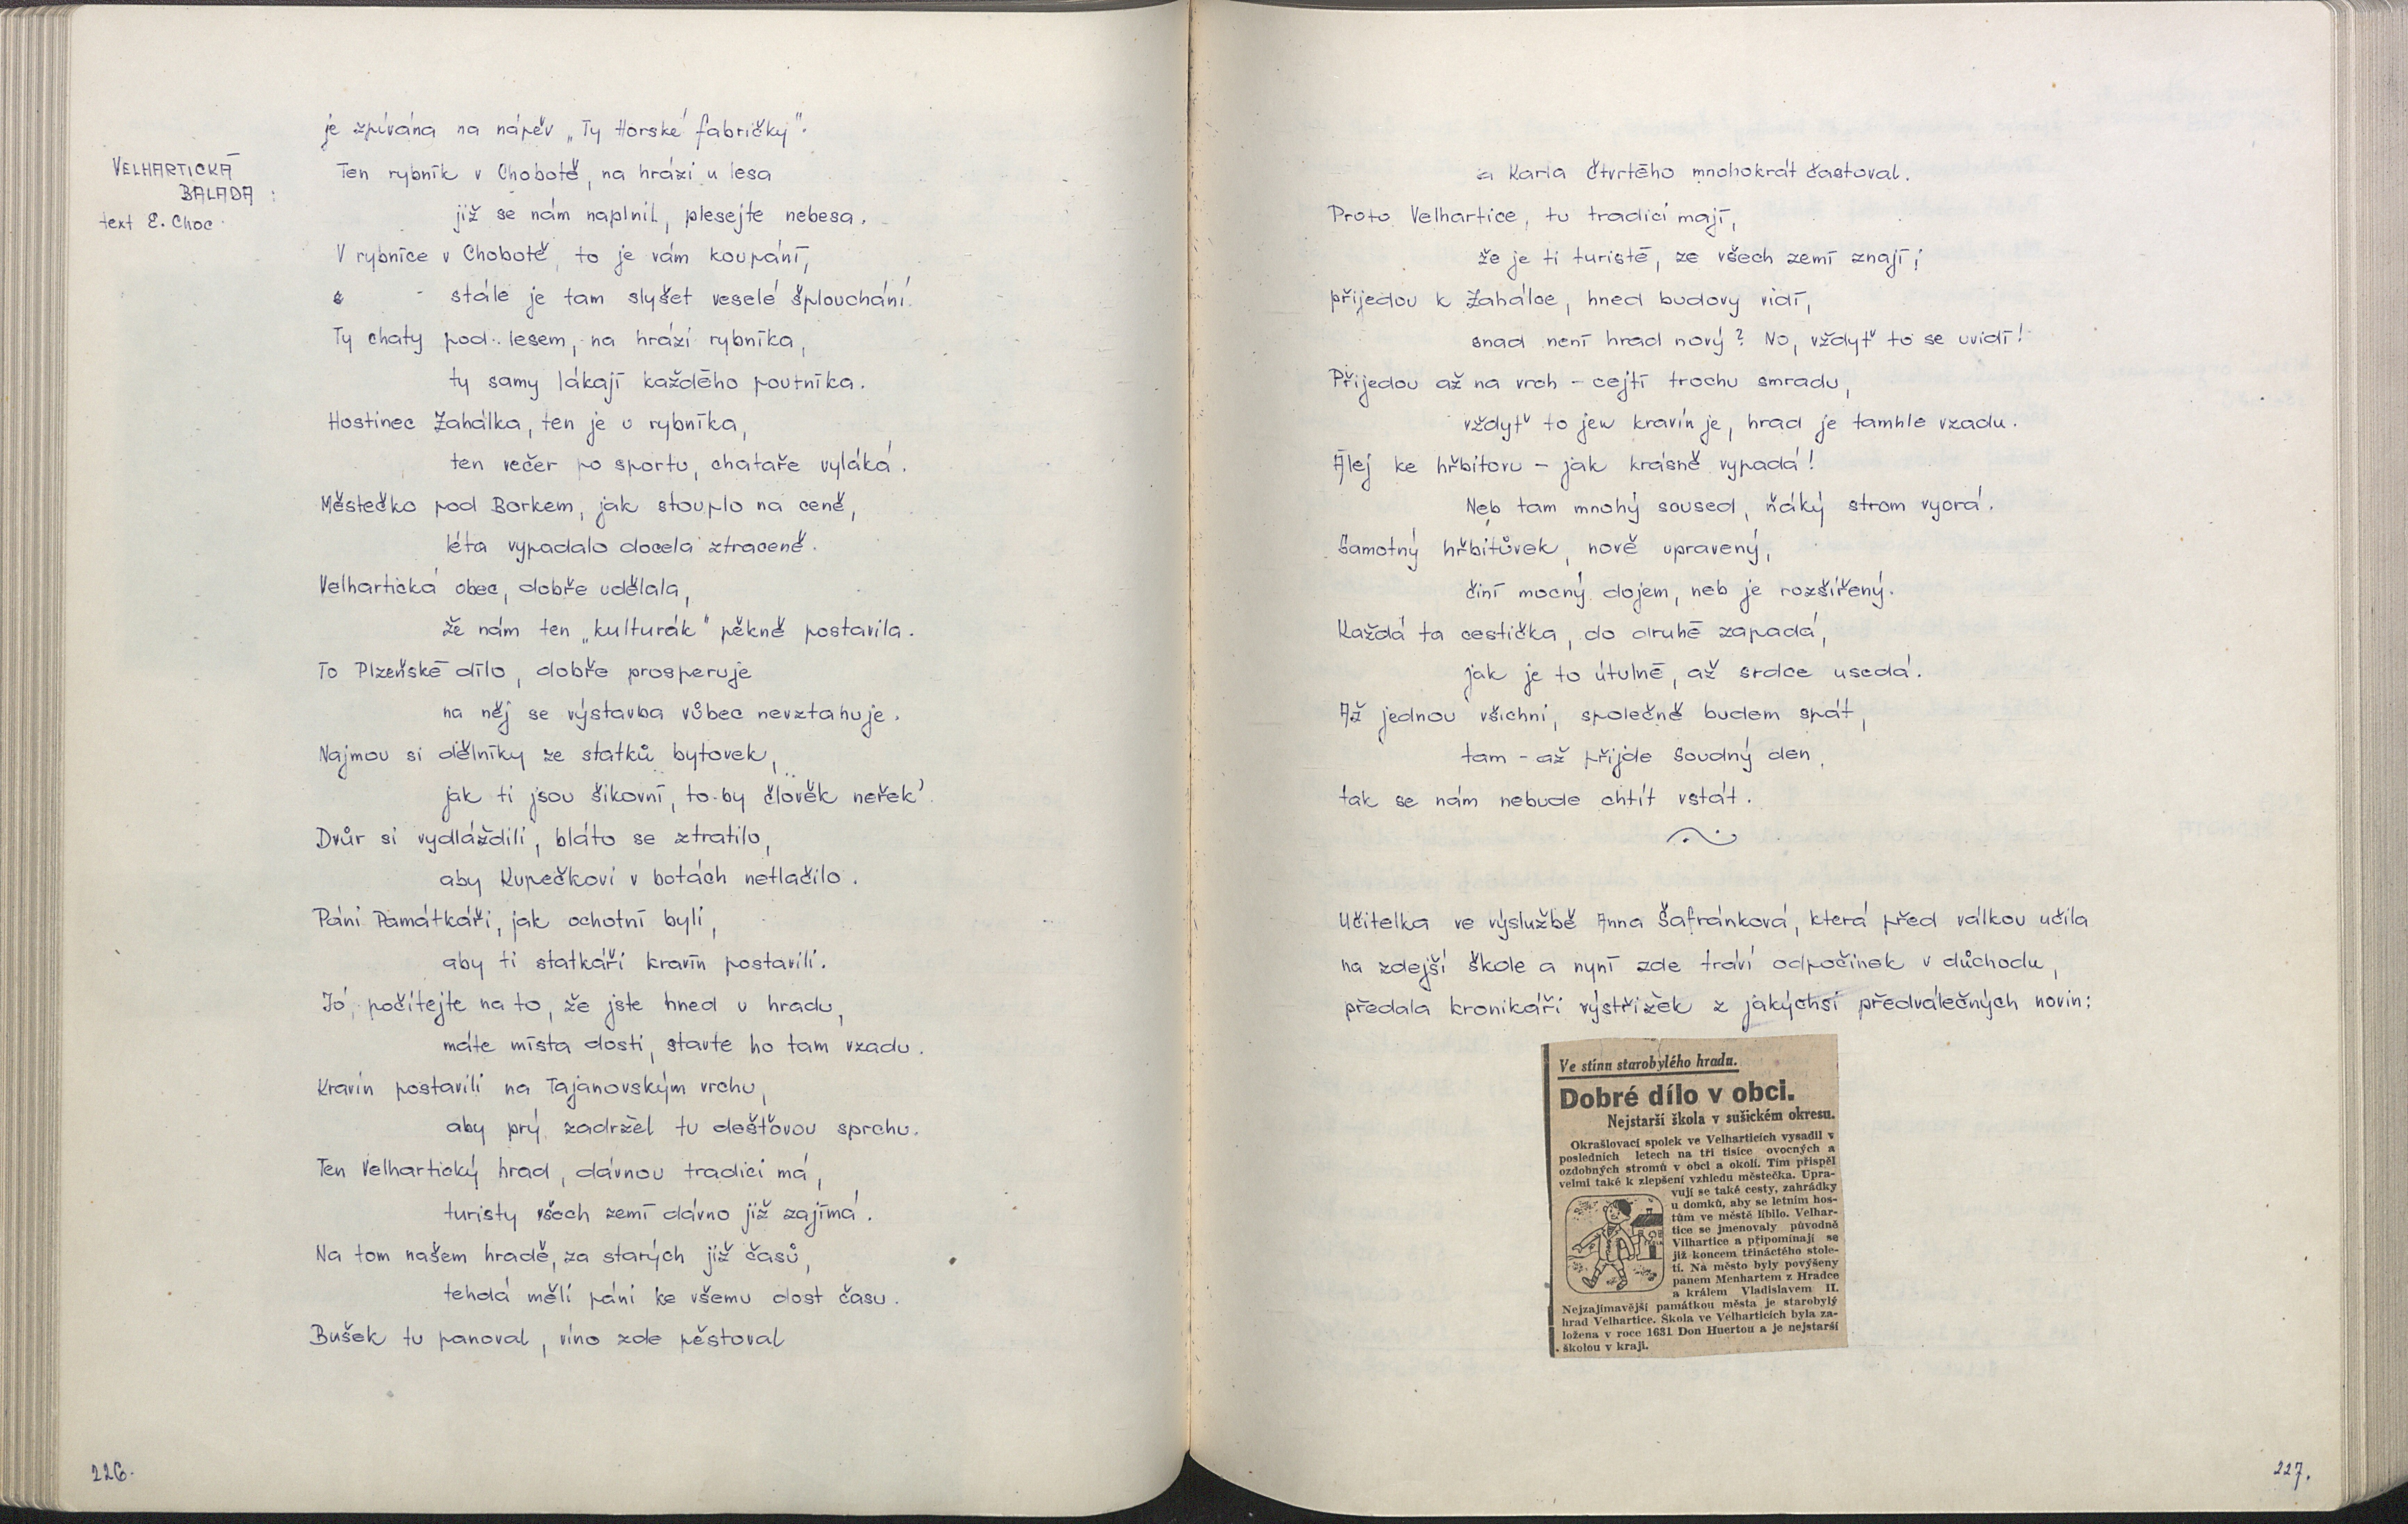 je zpívána na nápěv „Ty Horské fabričky".
VELHARTICKÁ
BALADA :
text E. Choc.
Ten rybník v Chobotě, na hrázi u lesa
již se nám naplnil, plesejte nebesa.
V rybníce v Chobotě, to je vám koupání,
stále je tam slyšet veselé šplouchání.
Ty chaty pod lesem, na hrázi rybníka,
ty samy lákají každého poutníka.
Hostinec Zahálka, ten je u rybníka,
ten večer po sportu, chataře vyláká.
Městečko pod Borkem, jak stouplo na ceně,
léta vypadalo docela ztraceně.
Velhartická obec, dobře udělala,
že nám ten „kulturák" pěkně postavila.
To Plzeňské dílo, dobře prosperuje
na něj se výstavba vůbec nevztahuje.
Najmou si dělníky ze statků bytovek,
jak ti jsou šikovní, to by člověk neřek'.
Dvůr si vydláždili, bláto se ztratilo,
aby Kupečkovi v botách netlačilo.
Páni Památkáři, jak ochotní byli,
aby ti statkáři kravín postavili.
Jó, počítejte na to, že jste hned u hradu,
máte místa dosti, stavte ho tam vzadu.
Kravín postavili na Tajanovským vrchu,
aby prý zadržel tu dešťovou sprchu.
Ten Velhartický hrad, dávnou tradici má,
turisty všech zemí dávno již zajímá.
Na tom našem hradě, za starých již časů,
tehdá měli páni ke všemu dost času.
Bušek tu panoval, víno zde pěstoval
226.
a Karla Čtvrtého mnohokrát častoval.
Proto Velhartice, tu tradici mají,
že je ti turisté, ze všech zemí znají;
přijedou k Zahálce, hned budovy vidí,
snad není hrad nový? No, vždyť to se uvidí!
Přijedou až na vrch – cejtí trochu smradu,
vždyť to jen kravín je, hrad je tamhle vzadu.
Alej ke hřbitovu – jak krásně vypadá!
Neb tam mnohý soused, ňáký strom vyorá.
Samotný hřbitůvek, nově upravený,
činí mocný dojem, neb je rozšířený.
Každá ta cestička, do druhé zapadá,
jak je to útulné, až srdce usedá.
Až jednou všichni, společně budem spát,
tam – až přijde Soudný den,
tak se nám nebude chtít vstát.
Učitelka ve výslužbě Anna Šafránková, která před válkou učila
na zdejší škole a nyní zde tráví odpočinek v důchodu,
předala kronikáři výstřižek z jakýchsi předválečných novin:
Ve stínu starobylého hradu.
Dobré dílo v obci.
Nejstarší škola v sušickém okresu.
Okrašlovací spolek ve Velharticích vysadil v
posledních letech na tři tisíce ovocných a
ozdobných stromů v obci a okolí. Tím přispěl
velmi také k zlepšení vzhledu městečka. Upra-
vují se také cesty, zahrádky
u domků, aby se letním hos-
tům ve městě líbilo. Velhar-
tice se jmenovaly původně
Vilhartice a připomínají se
již koncem třináctého stole-
tí. Na město byly povýšeny
panem Menhartem z Hradce
a králem Vladislavem II.
Nejzajímavější památkou města je starobylý
hrad Velhartice. Škola ve Velharticích byla za-
ložena v roce 1631 Don Huertou a je nejstarší
školou v kraji.
227.